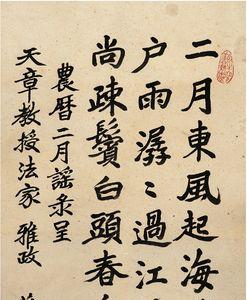 二月東風起海
戶雨潺々過江
尚疎鬢白頭春
農曆二月謡录呈
天章教授法家 雅政